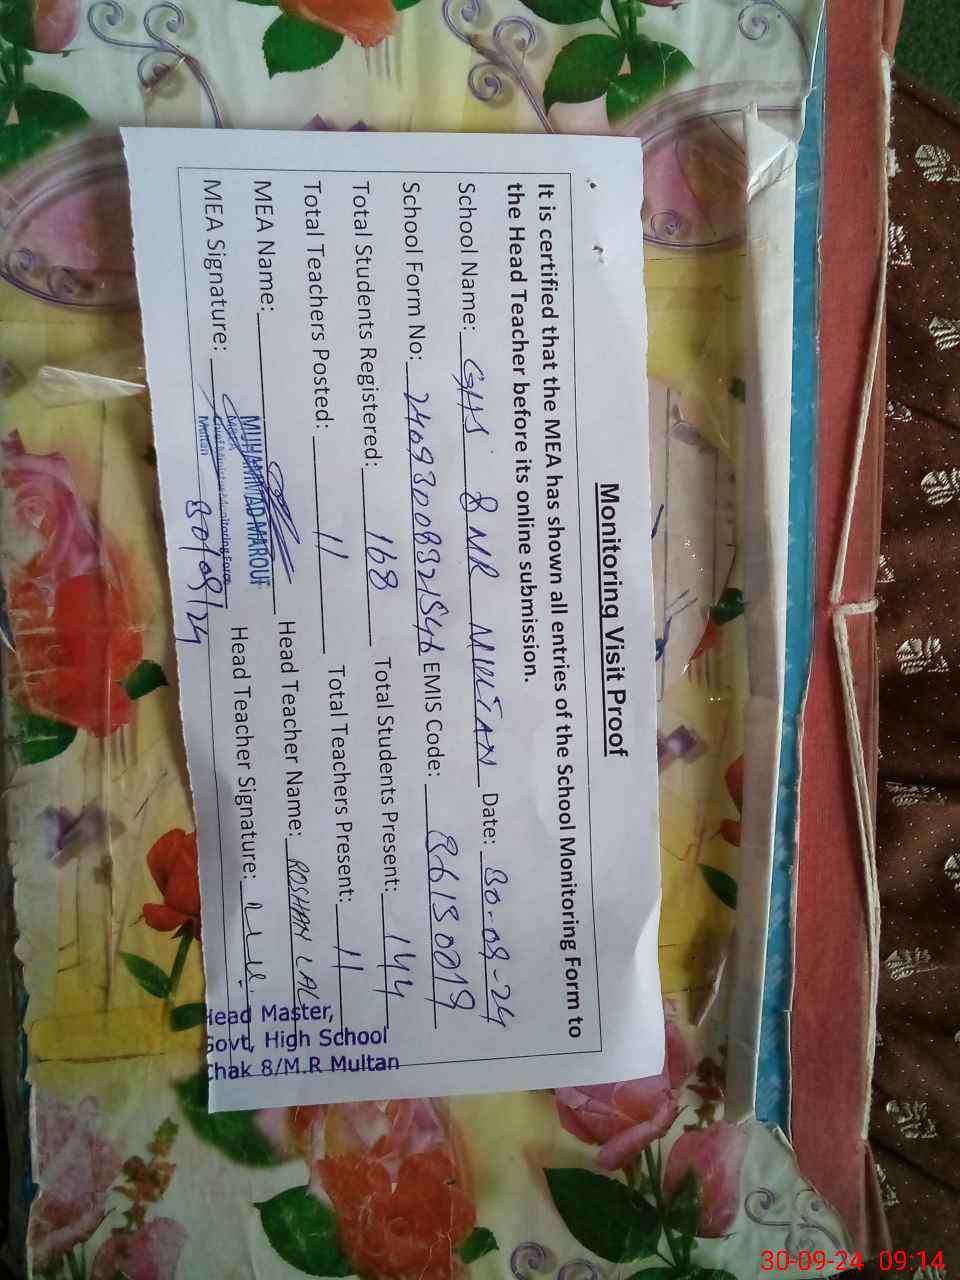 Monitoring Visit Proof
It is certified that the MEA has shown all entries of the School Monitoring Form to
the Head Teacher before its online submission.
School Name: GHS 8 MR MULTAN Date: 30-09-24
School Form No: EMIS Code: 36130019
Total Students Registered: 168 Total Students Present: 144
Total Teachers Posted: 11 Total Teachers Present: 11
MEA Name: MUHAMMAD MAROUF Head Teacher Name: ROSHAN LAL
MEA Signature: Head Teacher Signature:
Multan
30/09/24
Head Master,
Govt, High School
Chak 8/M.R Multan
30-09-24 09:14